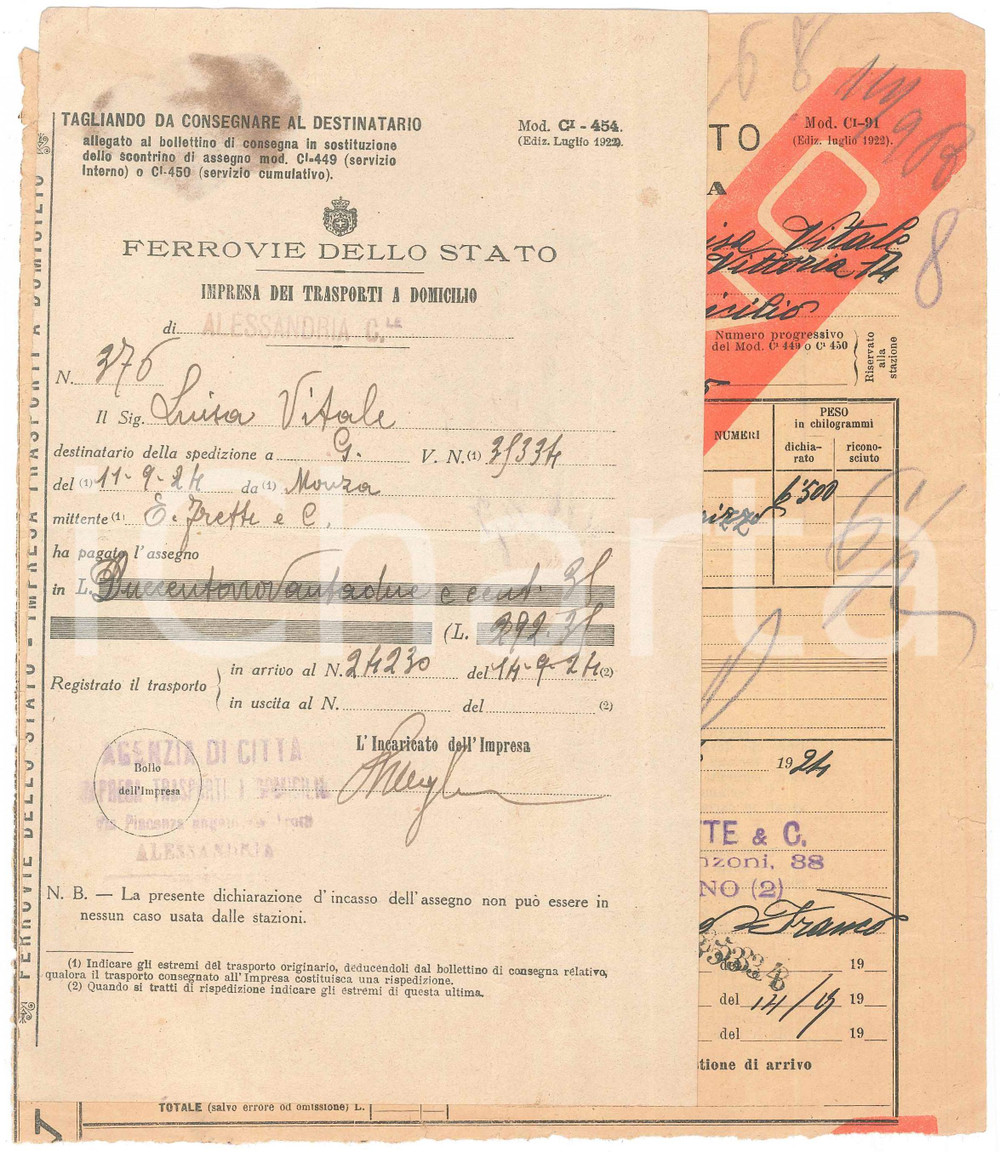 TAGLIANDO DA CONSEGNARE AL DESTINATARIO
allegato al bollettino di consegna in sostituzione
dello scontrino di assegno mod. CI-449 (servizio
Interno) o CI-450 (servizio cumulativo).
Mod. CI - 454.
(Ediz. Luglio 1922).
FERROVIE DELLO STATO
IMPRESA DEI TRASPORTI A DOMICILIO
di ALESSANDRIA C.LE
N. 376
Il Sig. Luisa Vitale
destinatario della spedizione a G. V. N.(1) 35334
del (1) 11-9-24 da (1) Monza
mittente (1) E. Frette e C.
ha pagato l'assegno
in L. Duecentonovantadue e cent. 35
(L. 292.35
Registrato il trasporto
in arrivo al N. 24230 del 14-9-24 (2)
in uscita al N. del (2)
L'Incaricato dell'Impresa
Bollo
dell'Impresa
AGENZIA DI CITTÀ
IMPRESA TRASPORTI A DOMICILIO
Via Piacenza
ALESSANDRIA
N. B. — La presente dichiarazione d'incasso dell'assegno non può essere in
nessun caso usata dalle stazioni.
(1) Indicare gli estremi del trasporto originario, deducendoli dal bollettino di consegna relativo,
qualora il trasporto consegnato all'Impresa costituisca una rispedizione.
(2) Quando si tratti di rispedizione indicare gli estremi di questa ultima.
FERROVIE DELLO STATO - IMPRESA TRASPORTI A DOMICILIO
TOTALE (salvo errore od omissione) L.
68
TO
Mod. CI-91
(Ediz. luglio 1922).
A
isa Vitale
Vittoria 14
icilio
8
Numero progressivo
del Mod. CI 449 o CI 450
Riservato
alla
stazione
5
NUMERI
PESO
in chilogrammi
dichia-
rato
ricono-
sciuto
6'500
izzo
6½
1924
TTE & C.
nzoni, 38
NO (2)
Franco
35334
del 19
del 14/9 19
del 19
tione di arrivo
iCharta